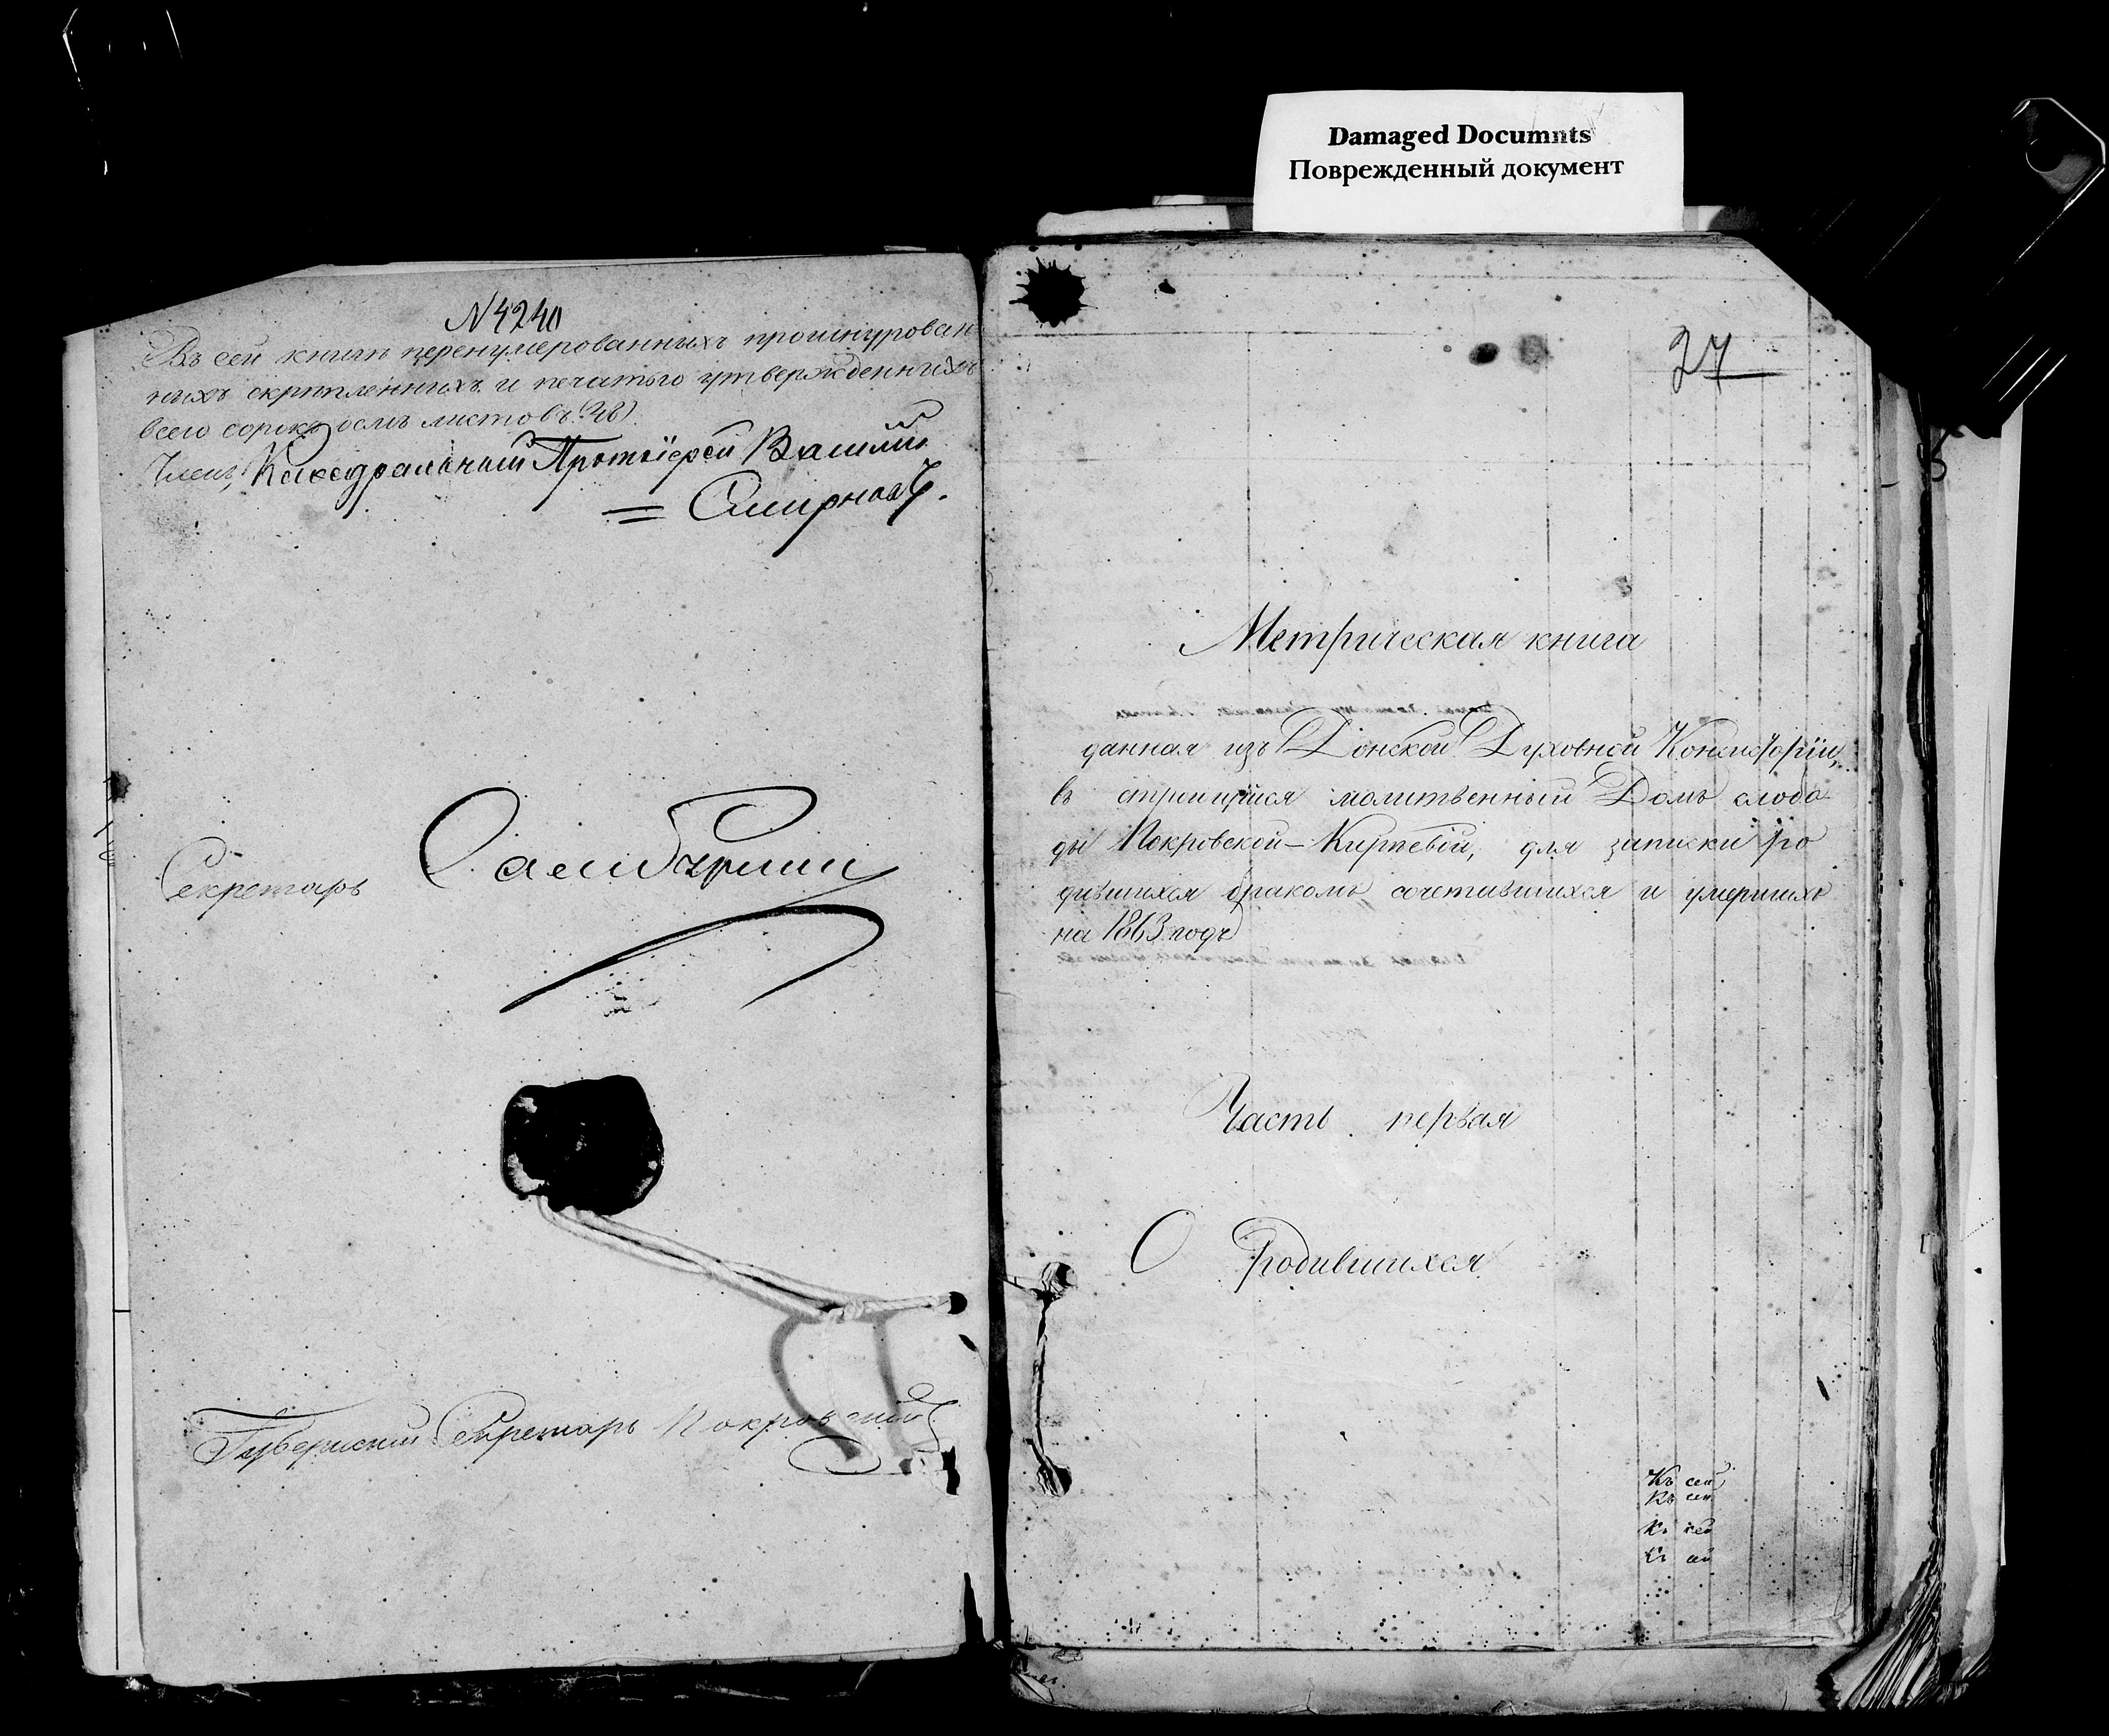 Damaged Documnts
Поврежденный документ
N 4240
Въ сей книгѣ перенумерованныхъ прошнурован
ныхъ скрѣпленныхъ и печатью утвержденныхъ
всего сорокъ осмь листовъ (48)
Членъ, Каѳедральный Протоіерей Василій
= Смирновъ.
Секретарь
Губернскій Секретарь Покровскій
27
Метрическая книга
данная изъ Донской Духовной Консисторіи,
въ строющійся молитвенный Домъ слобо
ды Покровской-Кирѣевой, для записки ро
дившихся бракомъ сочетавшихся и умершихъ
на 1863 годъ
Часть первая
О родившихся
Къ сей
Къ сей
Къ сей